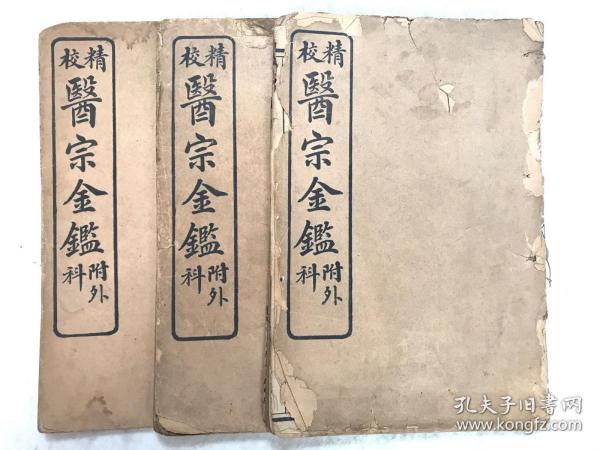 精校
醫宗金鑑
附外科
精校
醫宗金鑑
附外科
精校
醫宗金鑑
附外科
孔夫子旧書网
www.kongfz.com